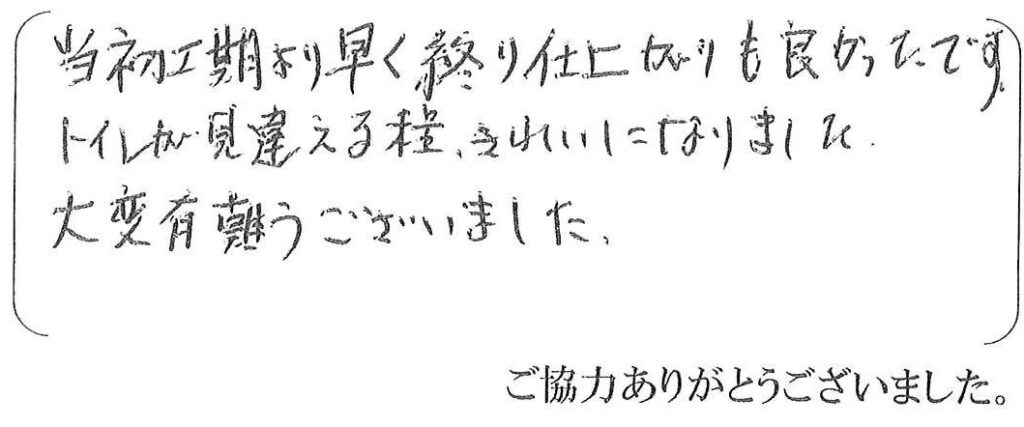 当初工期より早く終り仕上がりも良かったです。
トイレが見違える程、きれいになりました。
大変有難うございました。
ご協力ありがとうございました。